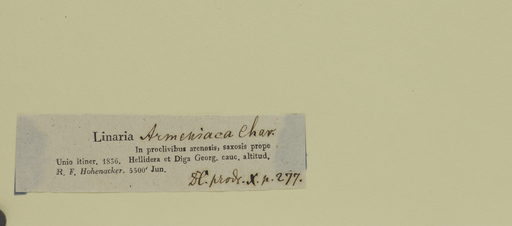 Linaria Armeniaca Chav.
In proclivibus arenosis, saxosis prope
Unio itiner. 1836. Hellidera et Diga Georg. cauc. altitud.
R. F. Hohenacker. 5500' Jun.
DC. prodr. X. p. 277.